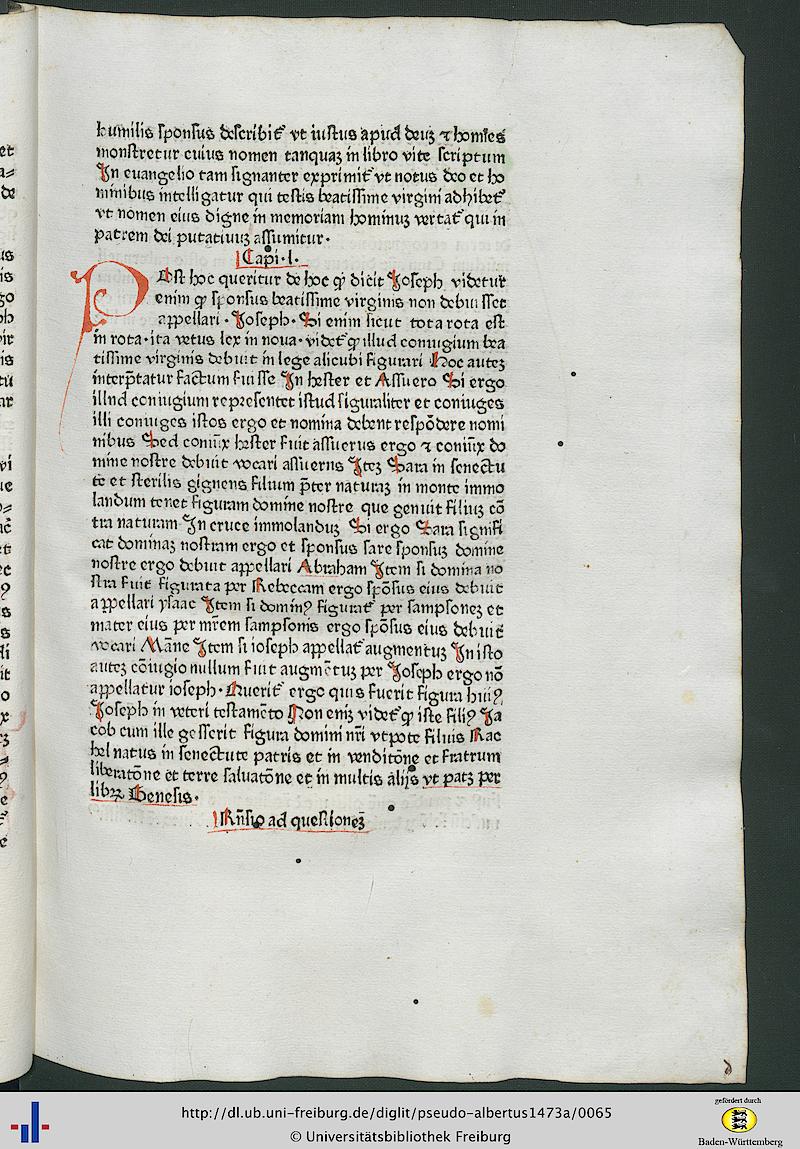 humilis sponsus describit᷑ vt iustus apud deuꝫ ⁊ hom̅es
monstretur cuius nomen tanquaꝫ in libro vite scriptum
In euangelio tam signanter exprimit᷑ vt notus deo et ho
minibus intelligatur qui testis beatissime virgini adhibet᷑
vt nomen eius digne in memoriam hominuꝫ vertat᷑ qui in
patrem dei putatiuuꝫ assumitur·
Capi·l·
POst hoc queritur de hoc ꝙ dicit Joseph videtur
enim ꝙ sponsus beatissime virginis non debuisset
appellari · Joseph · Si enim sicut tota rota est
in rota·ita vetus lex in noua·videt᷑ ꝙ illud coniugium bea
tissime virginis debuit in lege alicubi figurari Hoc auteꝫ
interp̅tatur factum fuisse In hester et Assuero Si ergo
illud coniugium representet istud figuraliter et coniuges
illi coniuges istos ergo et nomina debent respo̅dere nomi
nibus Sed coniu̅x hester fuit assuerus ergo ⁊ coniu̅x do
mine nostre debuit vocari assuerus Iteꝫ Sara in senectu
te et sterilis gignens filium p̅ter naturaꝫ in monte immo
landum tenet figuram domine nostre que genuit filiuꝫ co̅
tra naturam In cruce immolanduꝫ Si ergo Sara signifi
cat dominaꝫ nostram ergo et sponsus sare sponsuꝫ domine
nostre ergo debuit appellari Abraham Item si domina no
stra fuit figurata per Rebeccam ergo spo̅sus eius debuit
appellari ysaac Item si dominꝰ figurat᷑ per sampsoneꝫ et
mater eius per mr̅em sampsonis ergo spo̅sus eius debuit
vocari Ma̅ne Item si ioseph appellat᷑ augmentuꝫ In isto
auteꝫ co̅iugio nullum fuit augme̅tuꝫ per Joseph ergo no̅
appellatur ioseph · Querit᷑ ergo quis fuerit figura huiꝰ
Joseph in veteri testame̅to Non eniꝫ videt᷑ ꝙ iste filiꝰ Ja
cob cum ille gesserit figura domini nr̅i vtpote filuis Rac
hel natus in senectute patris et in vendito̅ne et fratrum
liberato̅ne et terre saluato̅ne et in multis alijs vt patꝫ per
libꝝ Genesis·
Rn̅sio ad questioneꝫ
http://dl.ub.uni-freiburg.de/diglit/pseudo-albertus1473a/0065
© Universitätsbibliothek Freiburg
gefördert durch
Baden-Württemberg